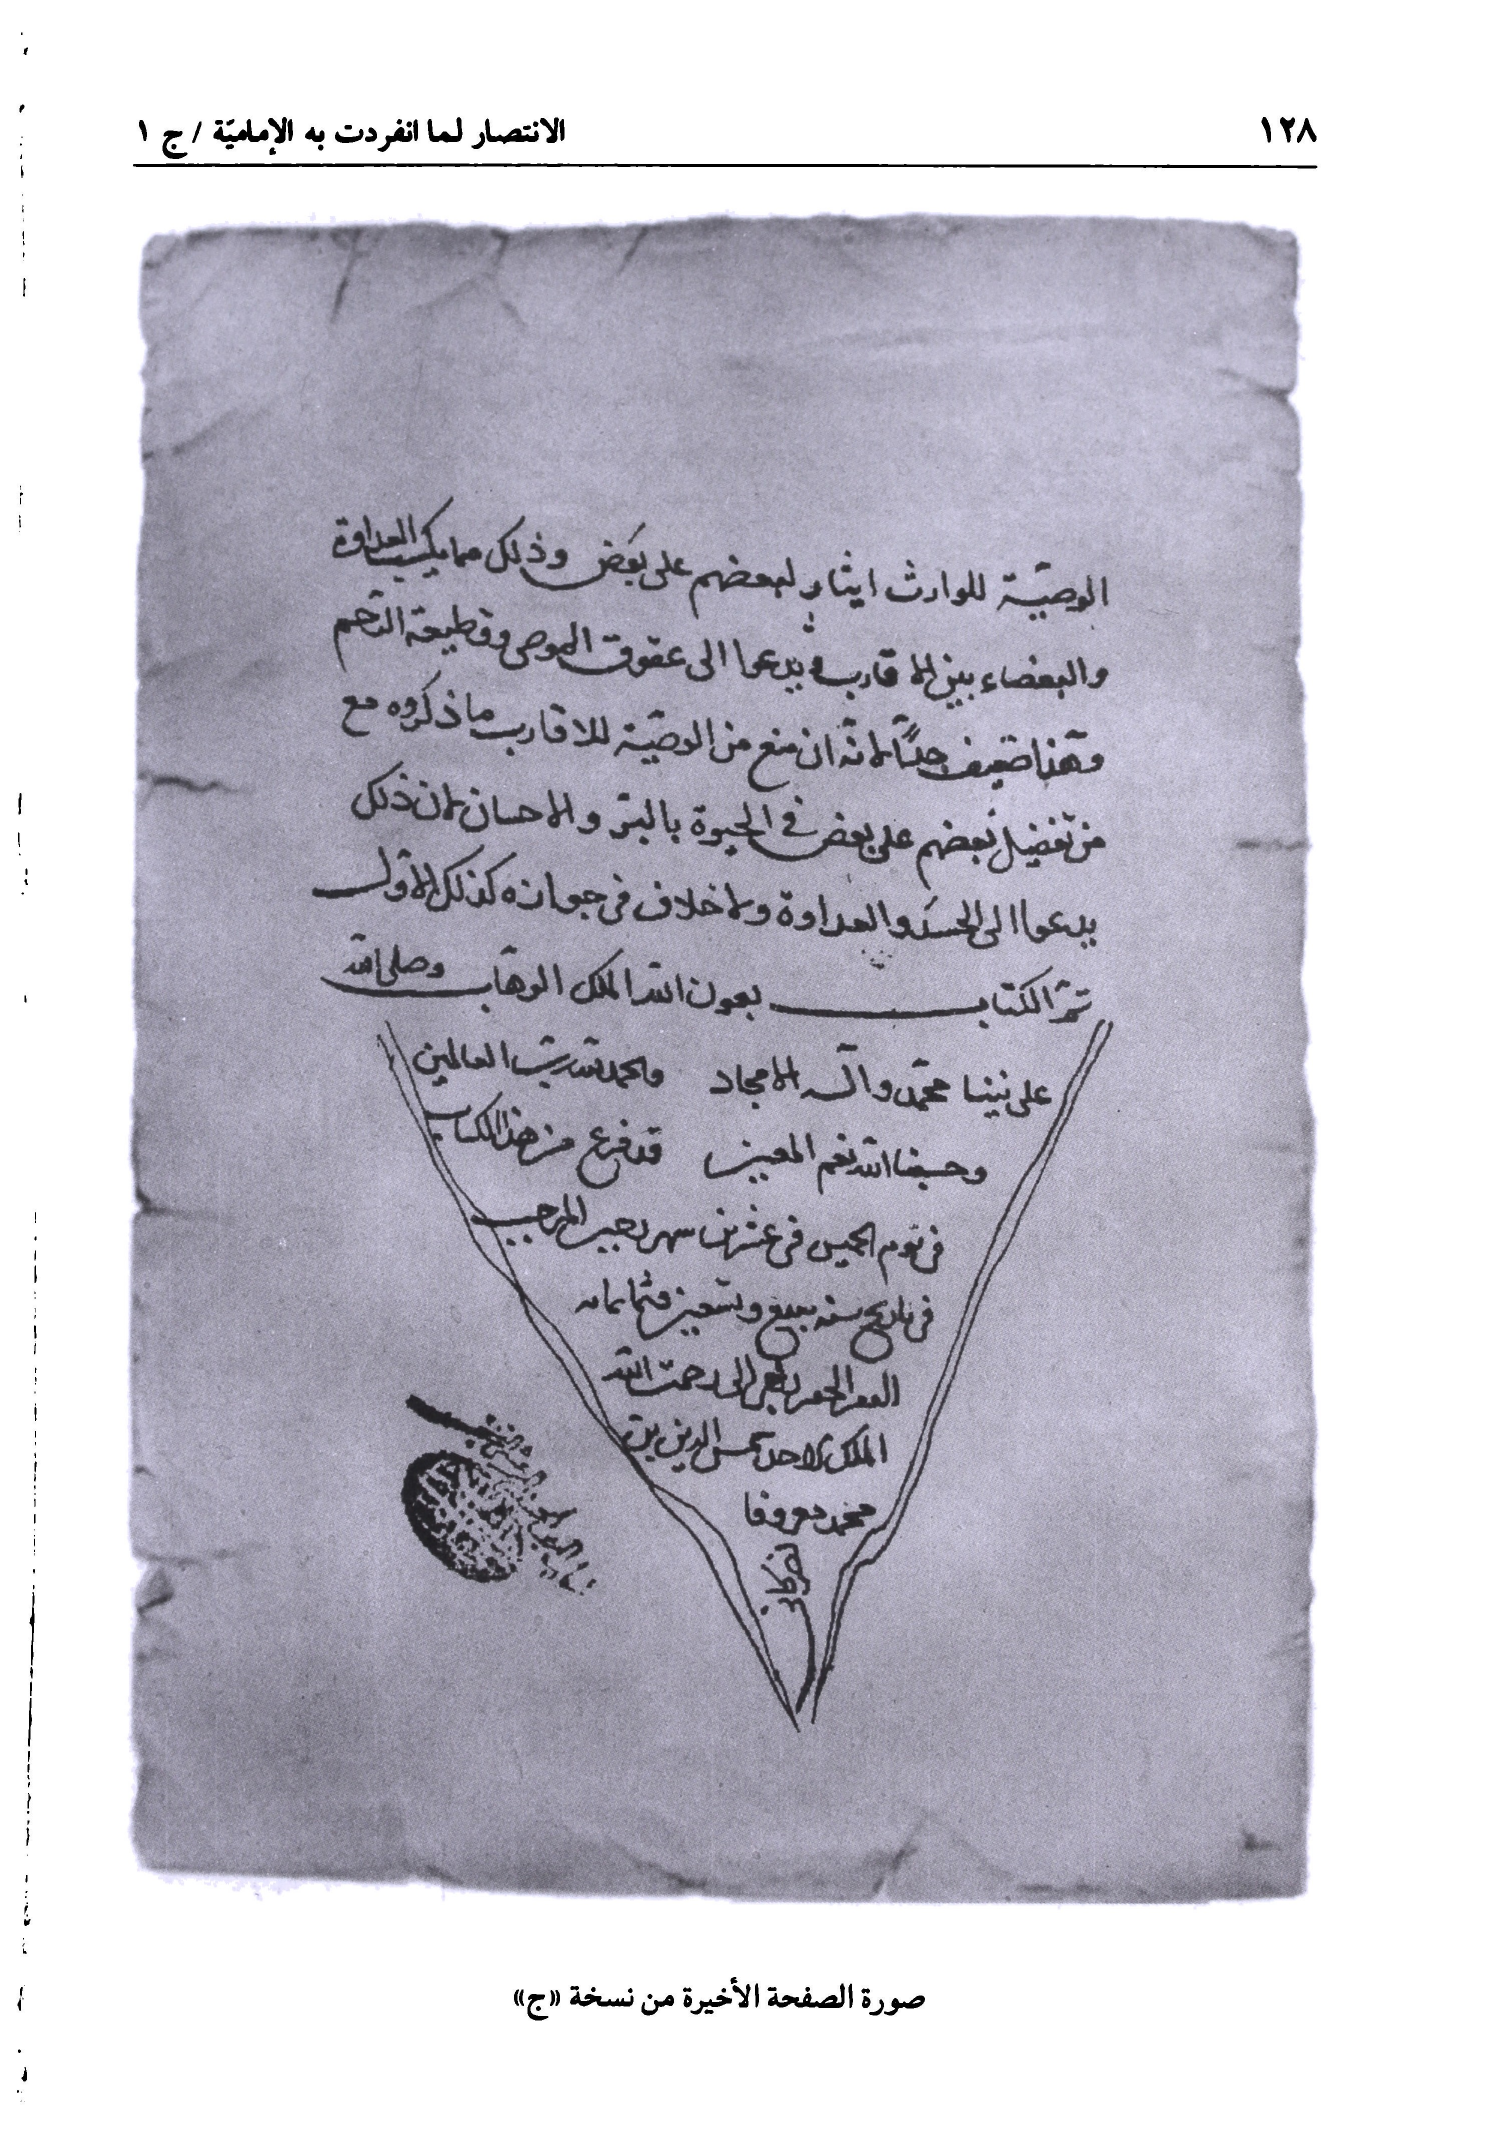 ١٢٨ الانتصار لما انفردت به الإماميّة / ج ١
الوصيّة للوارث ايثار لبعضهم على بعض وذلك مما يكسب العداوة
والبغضاء بين الاقارب و يدعوا الى عقوق الموصى وقطيعة الرّحم
وهذا ضعيف جدّاً لانّه ان منع من الوصيّة للاقارب ما ذكروه مع
من تفضيل بعضهم على بعض في الحيوة بالبرّ والاحسان لان ذلك
يدعوا الى الحسد والعداوة ولا خلاف في جوازه كذلك الاول
تمّ الكتاب بعون الله الملك الوهّاب وصلى الله
على نبينا محمّد وآله الامجاد والحمد لله ربّ العالمين
وحسبنا الله نعم المعين قد فرغ من هذا الكتاب
في يوم الخميس في عشرين شهر رجب المرجب
في تاريخ سنه وتسعين وثمانمايه
الى رحمت الله
الملك الاحد شمس الدين بن
محمد معروفا
صورة الصفحة الأخيرة من نسخة «ج»